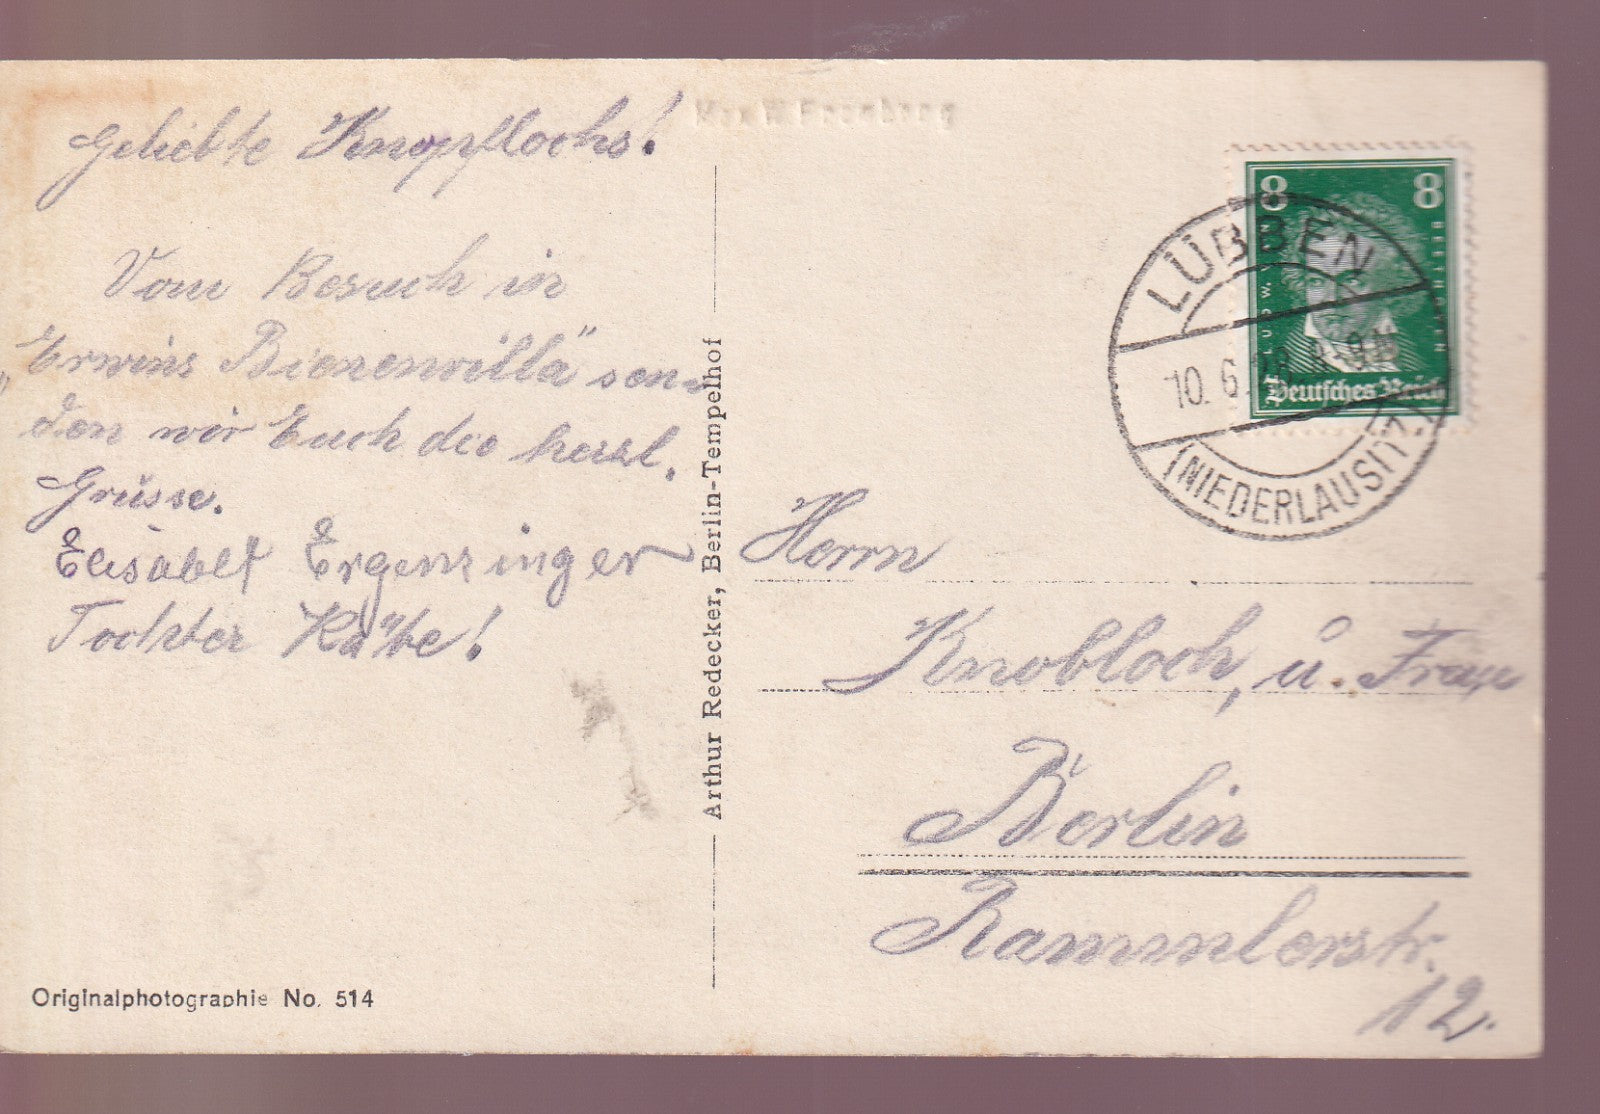 Geliebte Knopflochs!
Vom Besuch in
„Erwins Bienenvilla" sen-
den wir Euch die herzl.
Grüsse.
Elisabet Ergenzinger
Tochter Käte!
Originalphotographie No. 514
Arthur Redecker, Berlin-Tempelhof
8 8
LUDW. VAN BEETHOVEN
Deutsches Reich
LÜBBEN
10. 6. 28. 8-9N
(NIEDERLAUSITZ)
Herrn
Knobloch, u. Frau
Berlin
Rammlerstr.
12.